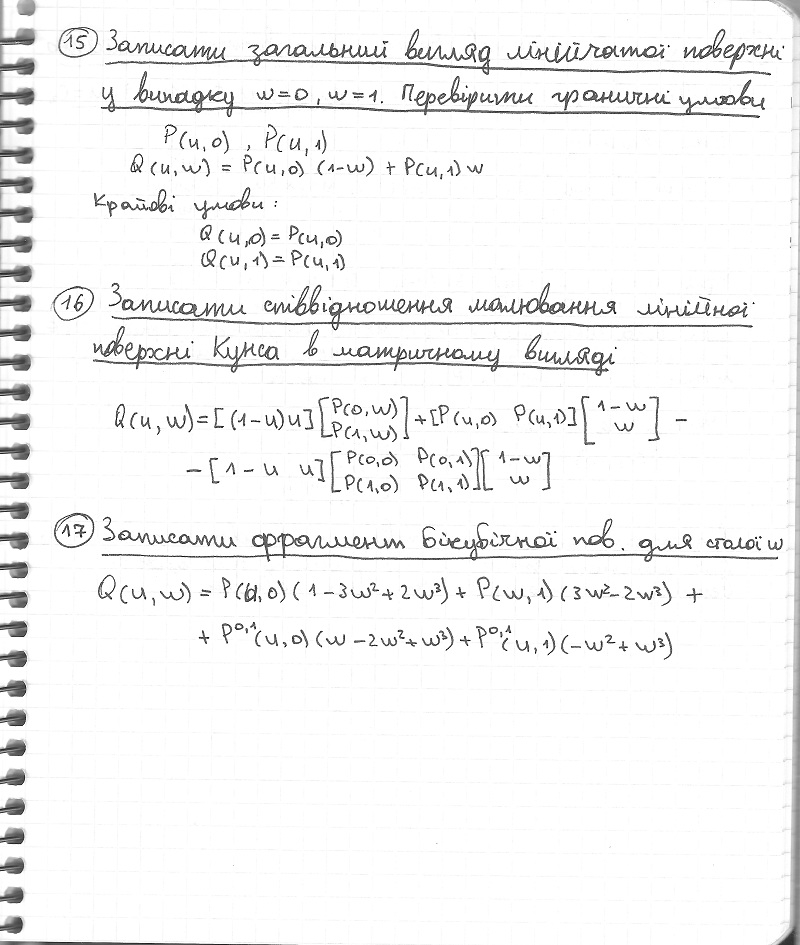 15 Записати загальний вигляд лінійчатої поверхні
у випадку w=0, w=1. Перевірити граничні умови
P(u,0) , P(u,1)
Q(u,w) = P(u,0) (1-w) + P(u,1) w
Крайові умови:
Q(u,0) = P(u,0)
Q(u,1) = P(u,1)
16 Записати співвідношення малювання лінійної
поверхні Кунса в матричному вигляді
Q(u,w) = [(1-u) u] [P(0,w) P(1,w)] + [P(u,0) P(u,1)] [1-w w] -
- [1-u u] [P(0,0) P(0,1) P(1,0) P(1,1)] [1-w w]
17 Записати фрагмент бікубічної пов. для сталої w
Q(u,w) = P(u,0) (1-3w²+2w³) + P(w,1) (3w²-2w³) +
+ P⁰·¹(u,0) (w-2w²+w³) + P⁰·¹(u,1) (-w²+w³)